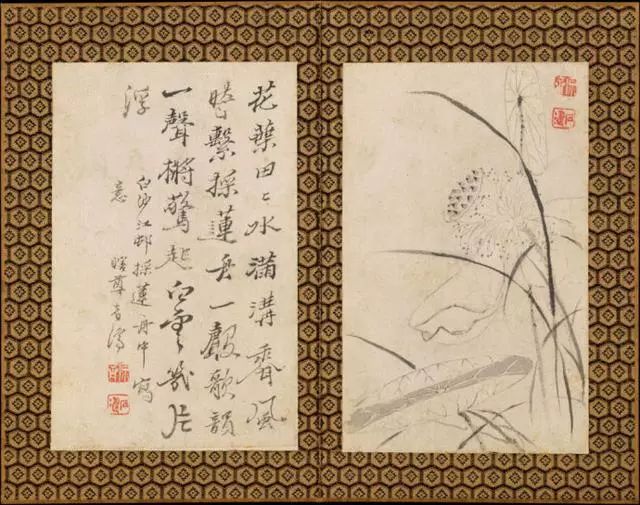 花葉田〻水滿溝香風
繫採蓮舟一聲歌韻
一聲驚起白雲幾片
浮
白沙江邨採蓮舟中寫
意 瞎尊者濟